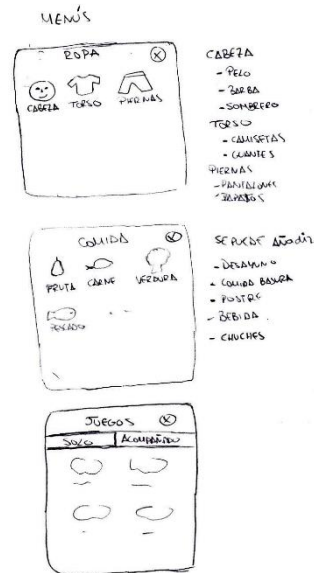 MENÚS
ROPA
CABEZA TORSO PIERNAS
CABEZA
- PELO
- BARBA
- SOMBRERO
TORSO
- CAMISETAS
- GUANTES
PIERNAS
- PANTALONES
- ZAPATOS
COMIDA
FRUTA CARNE VERDURA
PESCADO
SE PUEDE AÑADIR
- DESAYUNO
- COMIDA BASURA
- POSTRE
- BEBIDA
- CHUCHES
JUEGOS
SOLO ACOMPAÑADO